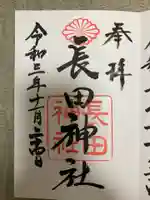 奉拝
長田神社
長田
神社
令和三年十一月